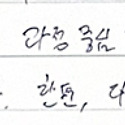 과정 중심
. 한편, 다